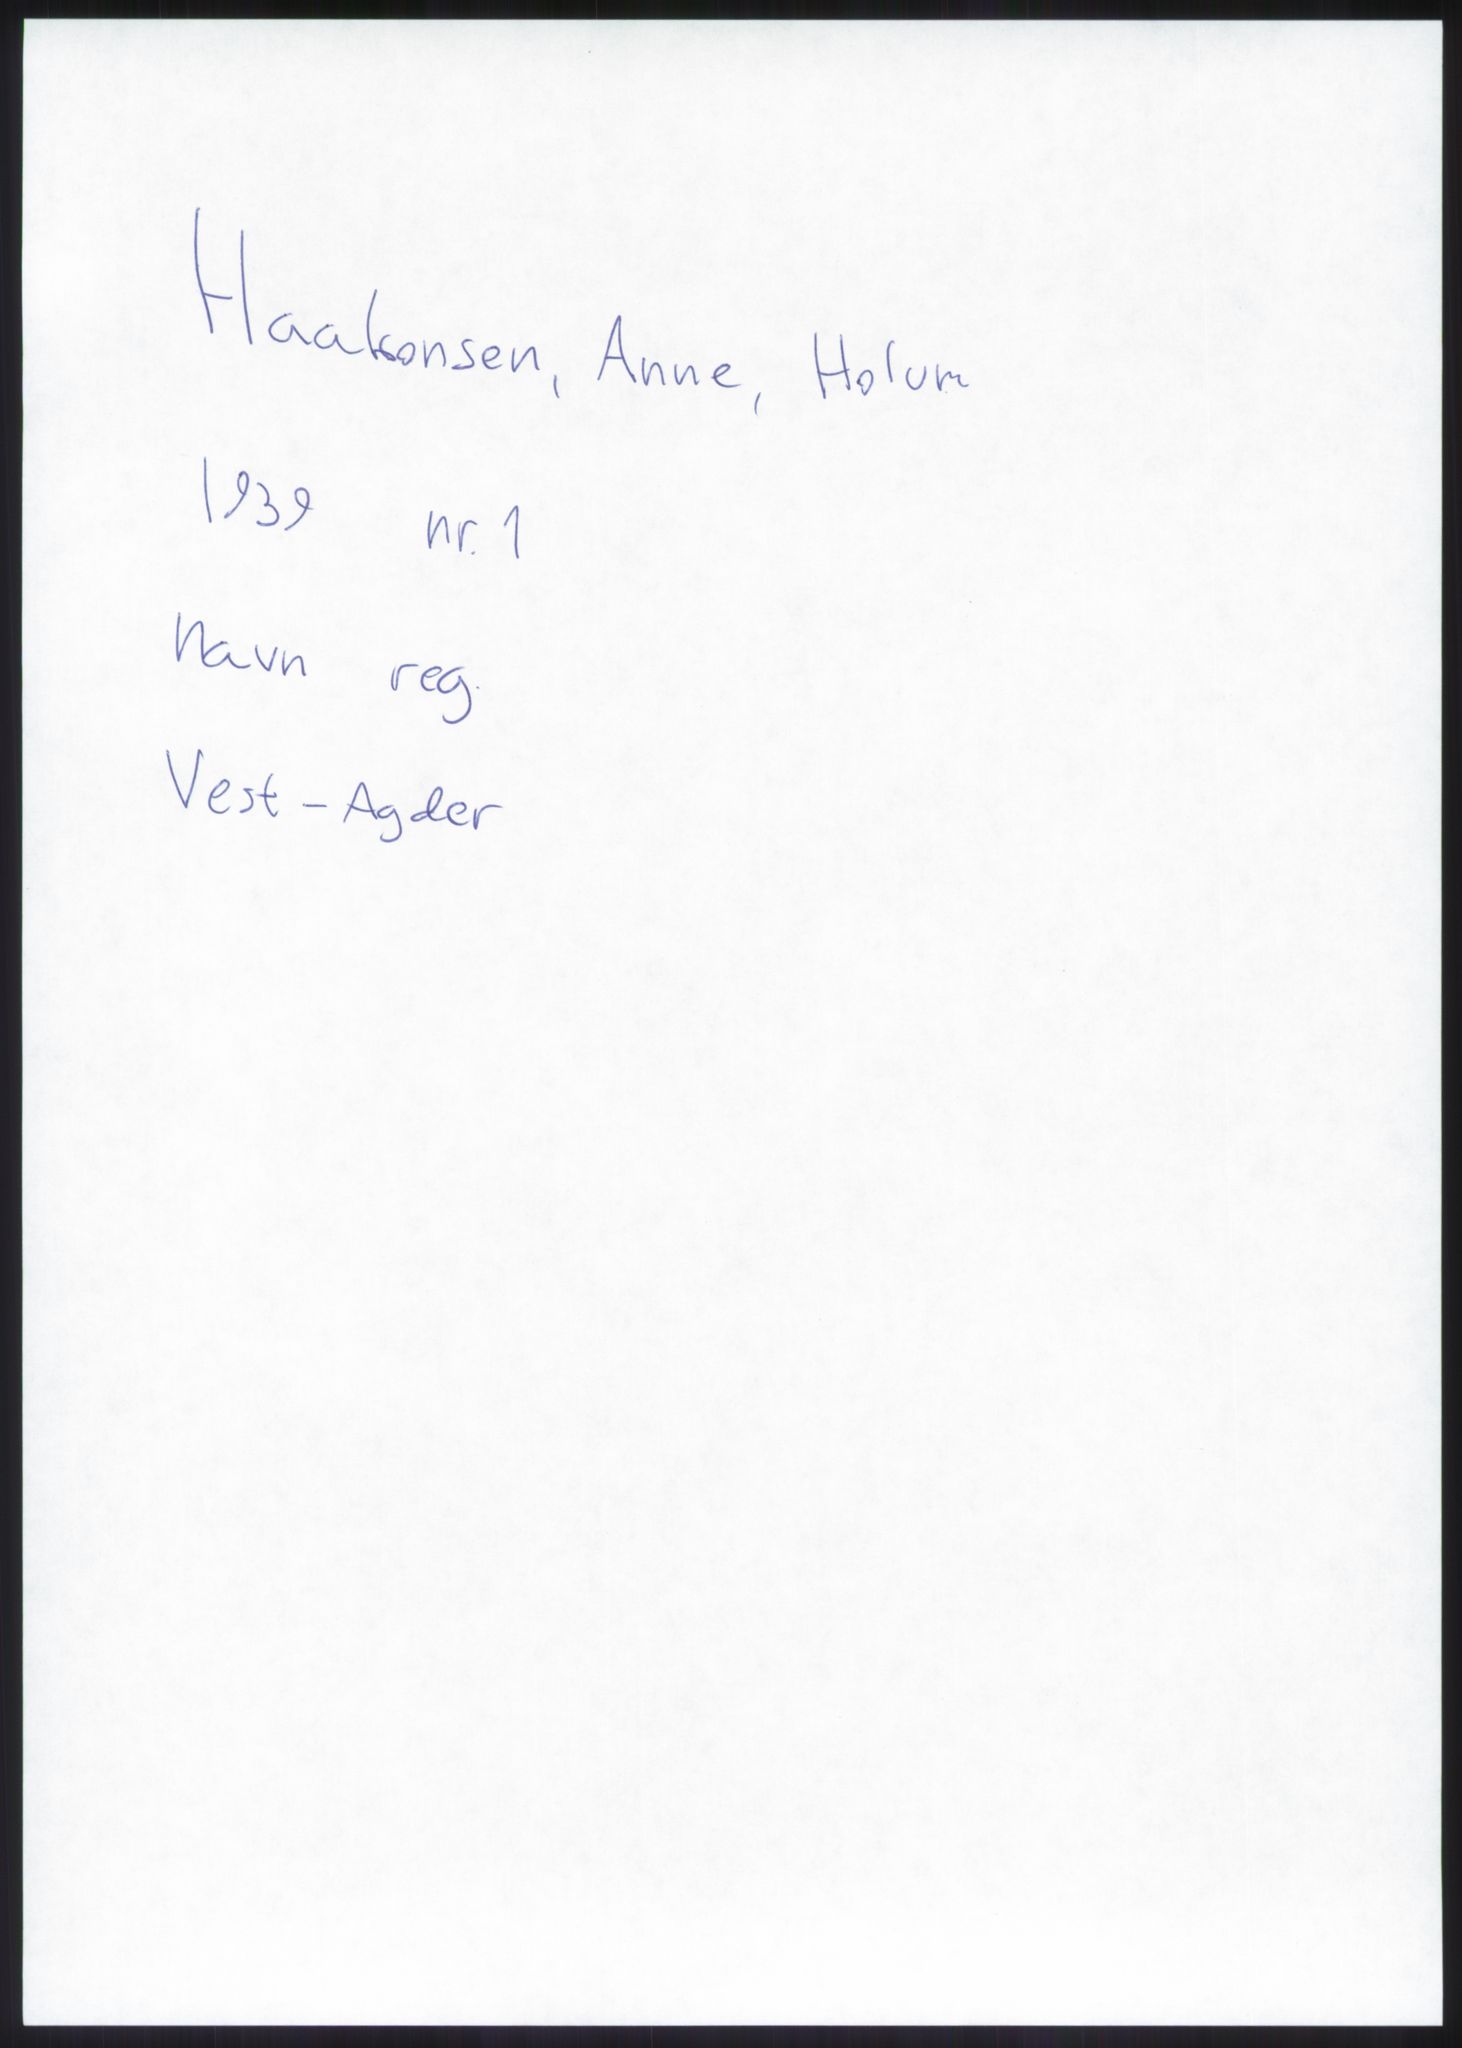 Haakonsen, Anne, Holum
1939 nr. 1
Navn reg.
Vest-Agder